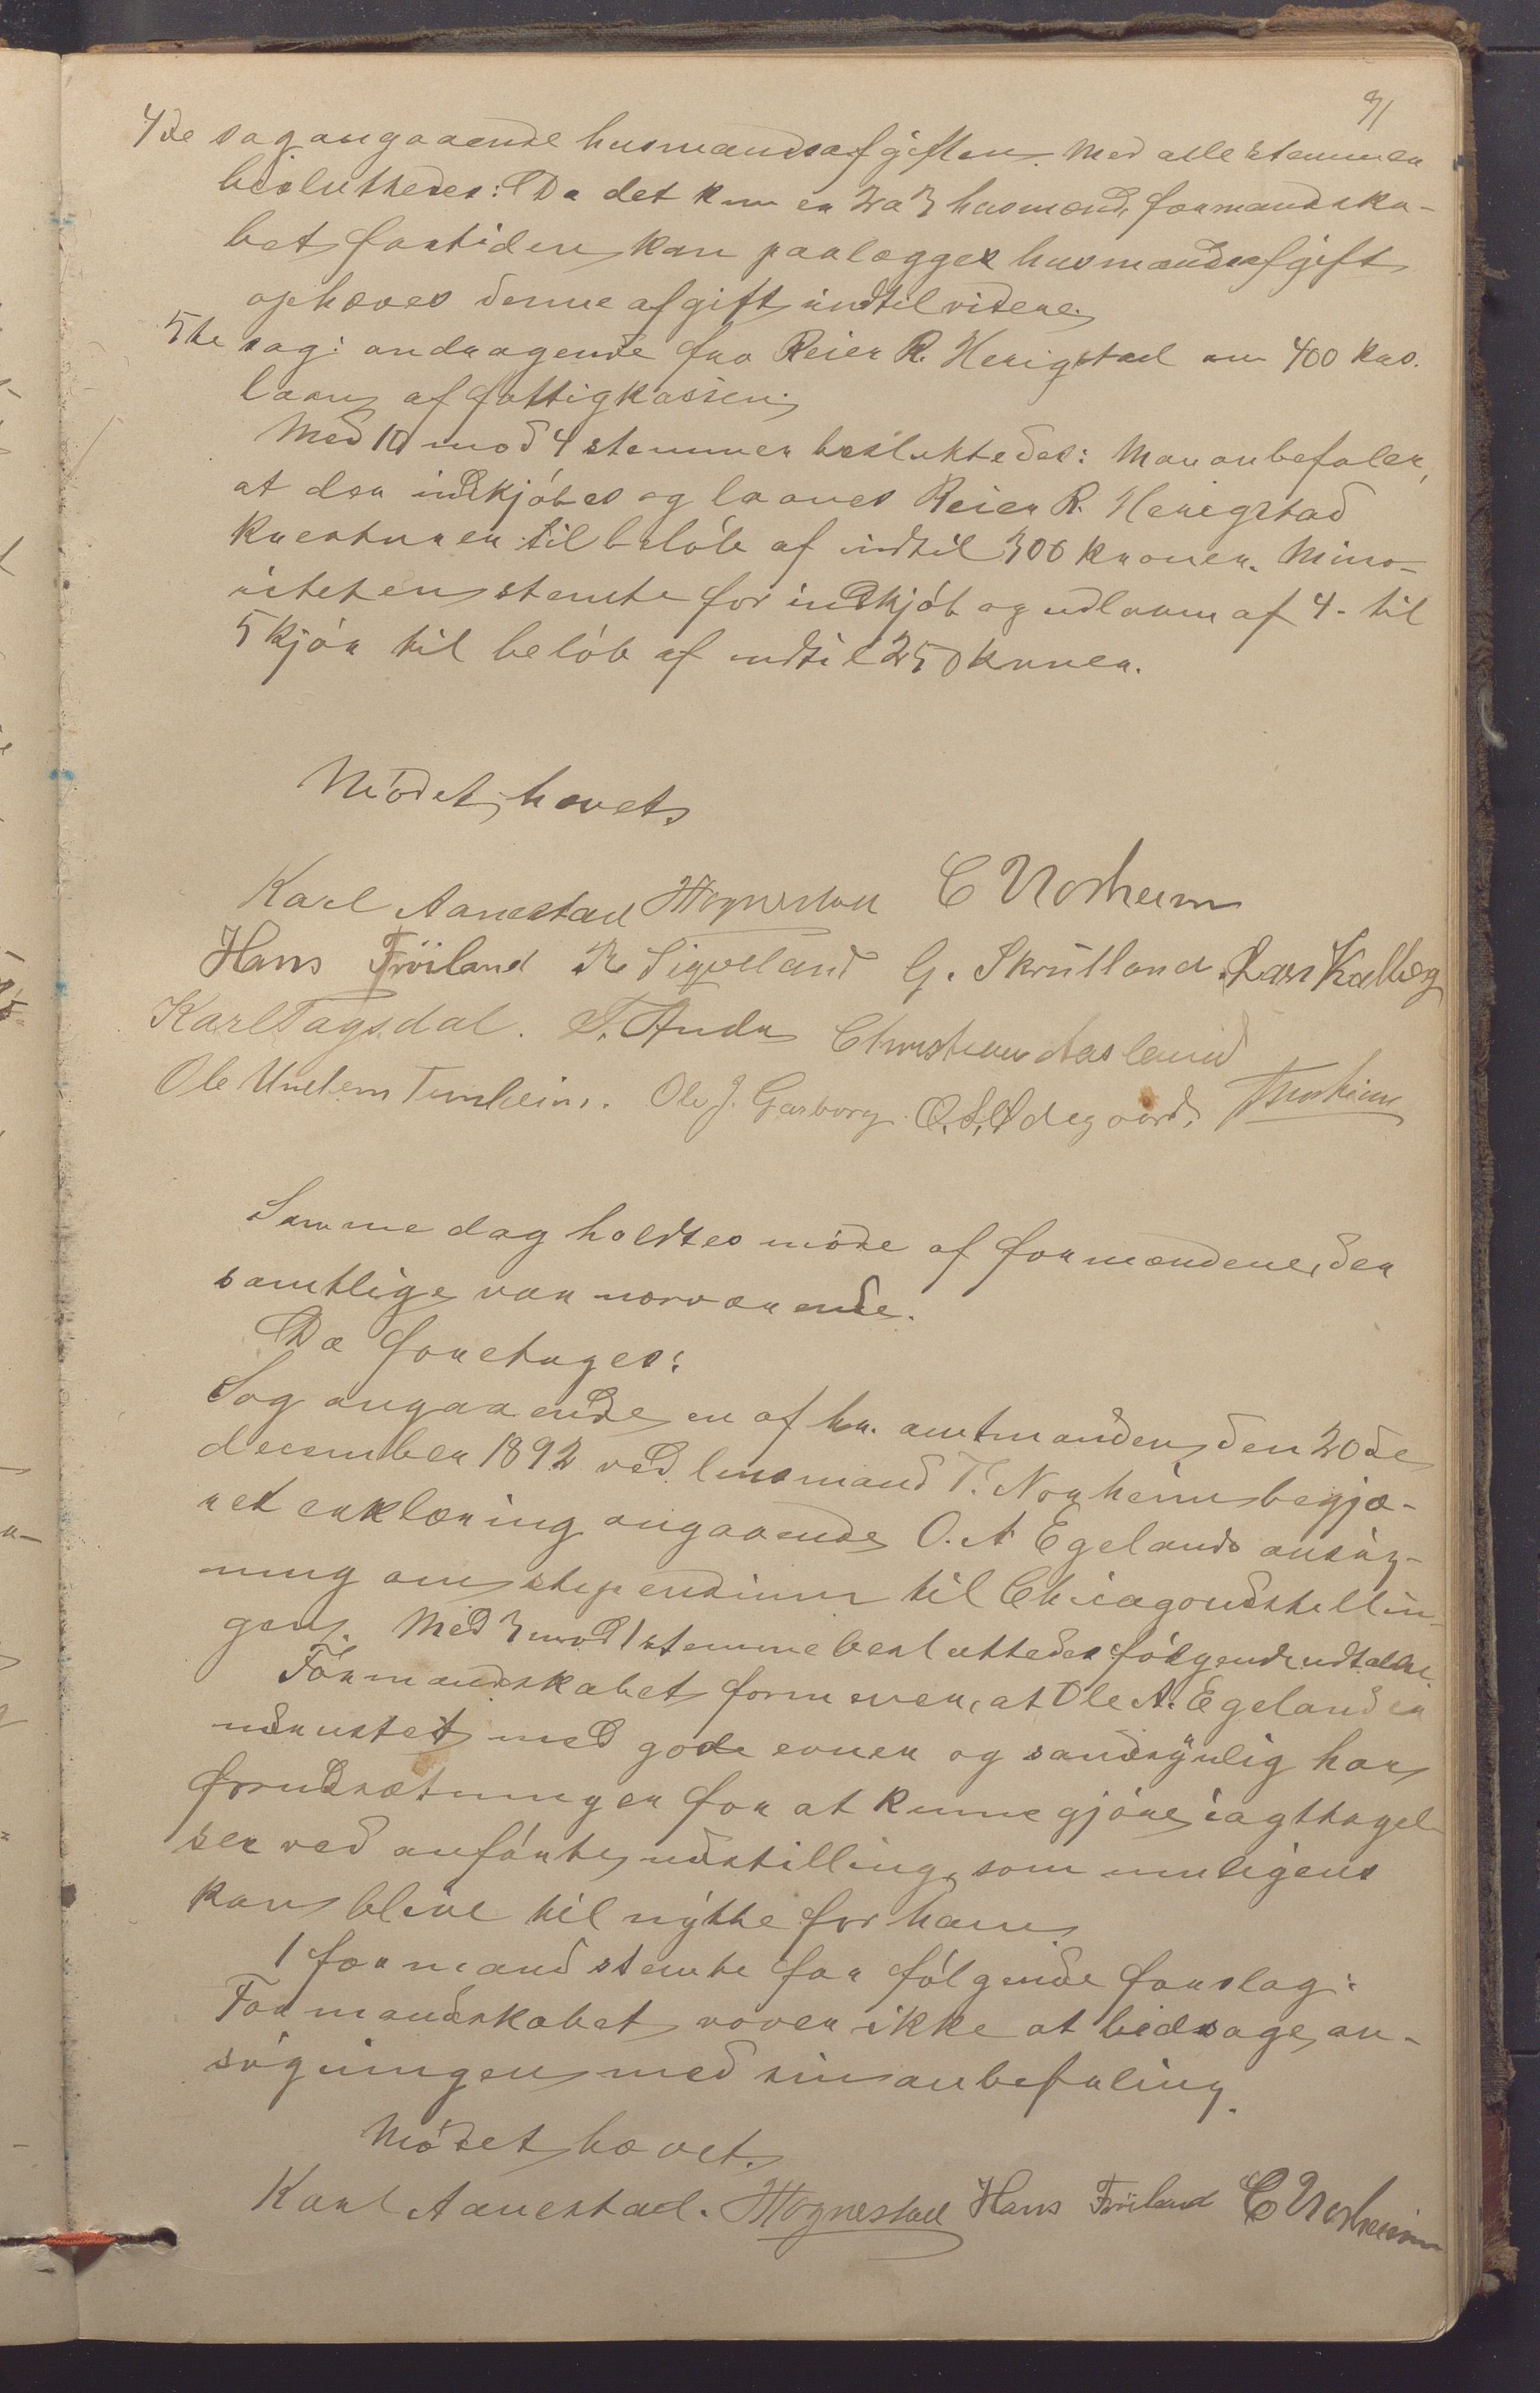 91
4de sag angaaende husmandsafgiften. Med alle stemmer
beslutttedes: Da det kun er 2 a 3 husmænd, formandska-
bet fortiden kan paalægges husmandsafgift
ophæves denne afgift indtil videre.
5te sag: andragende fra Reier R. Herigstad om 400 krs.
laan af fattigkassen.
Med 10 mod 4 stemmer besluttedes: Man anbefaler,
at der indkjöbes og laanes Reier R. Herigstad
kreaturer til beløb af indtil 300 kroner. Mino-
riteten stemte for indkjöb og udlaan af 4 - til
5 kjör til belöb af indtil 250 kroner.
Mödet hævet.
Karl Aanestad Hognestad C Norheim
Hans Fröiland R Sigveland G. Skrutland. Lars Kalberg
Karl Tagsdal. T. Anda Christian Aasland
Ole Undem Tunheim. Ole J. Garborg. O. S. Ødegaard. T Norheim
Samme dag holdtes möde af formændene, der
samtlige var nærværende.
Da foretages:
Sag angaaende en af hr. amtmanden den 20de
december 1892 ved lensmand T. Norheim begjæ-
ret erklæring angaaende O. A. Egelands ansög-
ning om stipendium til Chicagoudstellin-
gen. Med 3 mod 1 stemme besluttedes fölgende udtalelse.
Formandskabet formener, at Ole A. Egeland er
udrustet med gode evner og sandsynlig har
forudsætninger for at kunne gjöre iagttagel-
ser ved anförte udstilling, som muligens
kan blive til nytte for ham.
1 formand stemte for fölgende forslag:
Formandskabet vover ikke at ledsage an-
sögningen med sin anbefaling.
Mödet hævet.
Karl Aanestad. Hognestad Hans Fröiland C Norheim